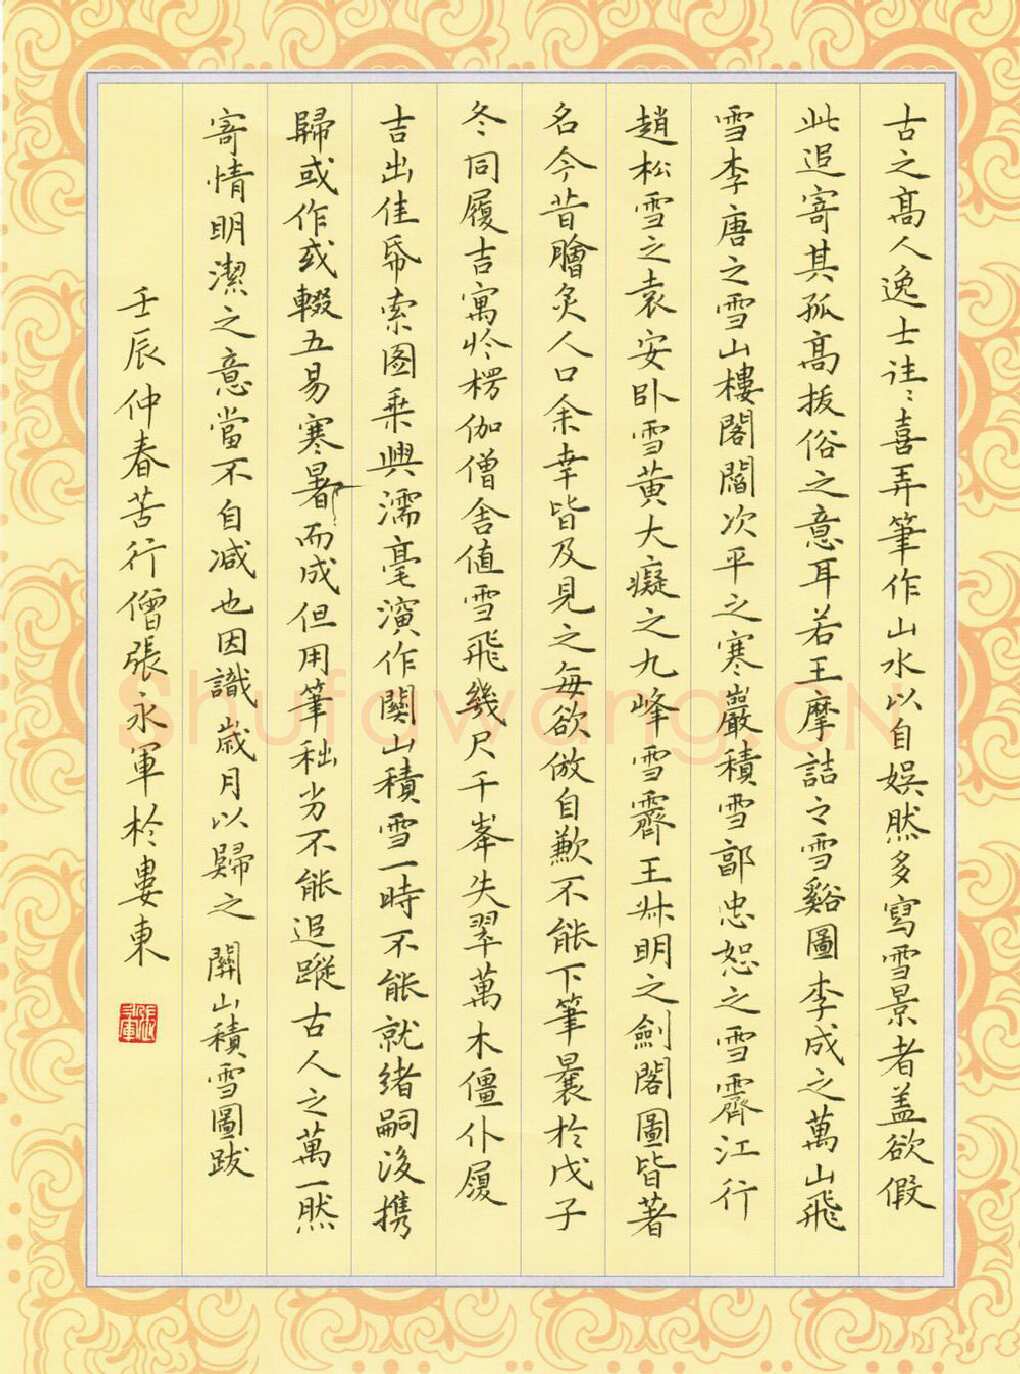 古之髙人逸士往々喜弄筆作山水以自娱然多寫雪景者盖欲假
此追寄其孤髙拔俗之意耳若王摩詰之雪谿圖李成之萬山飛
雪李唐之雪山樓閣閻次平之寒巖積雪郭忠恕之雪霽江行
趙松雪之袁安卧雪黄大癡之九峰雪霽王叔明之劍閣圖皆著
名今昔膾炙人口余幸皆及見之每欲倣自歉不能下筆曩於戊子
冬同履吉寓於楞伽僧舍值雪飛幾尺千峯失翠萬木僵仆履
吉出佳帋索图乗興濡毫演作關山積雪一時不能就緒嗣後携
歸或作或輟五易寒暑而成但用筆秪劣不能追蹤古人之萬一然
寄情明潔之意當不自减也因識歳月以歸之 關山積雪圖跋
壬辰仲春苦行僧張永軍於婁東
張永軍
Shufawang.CN